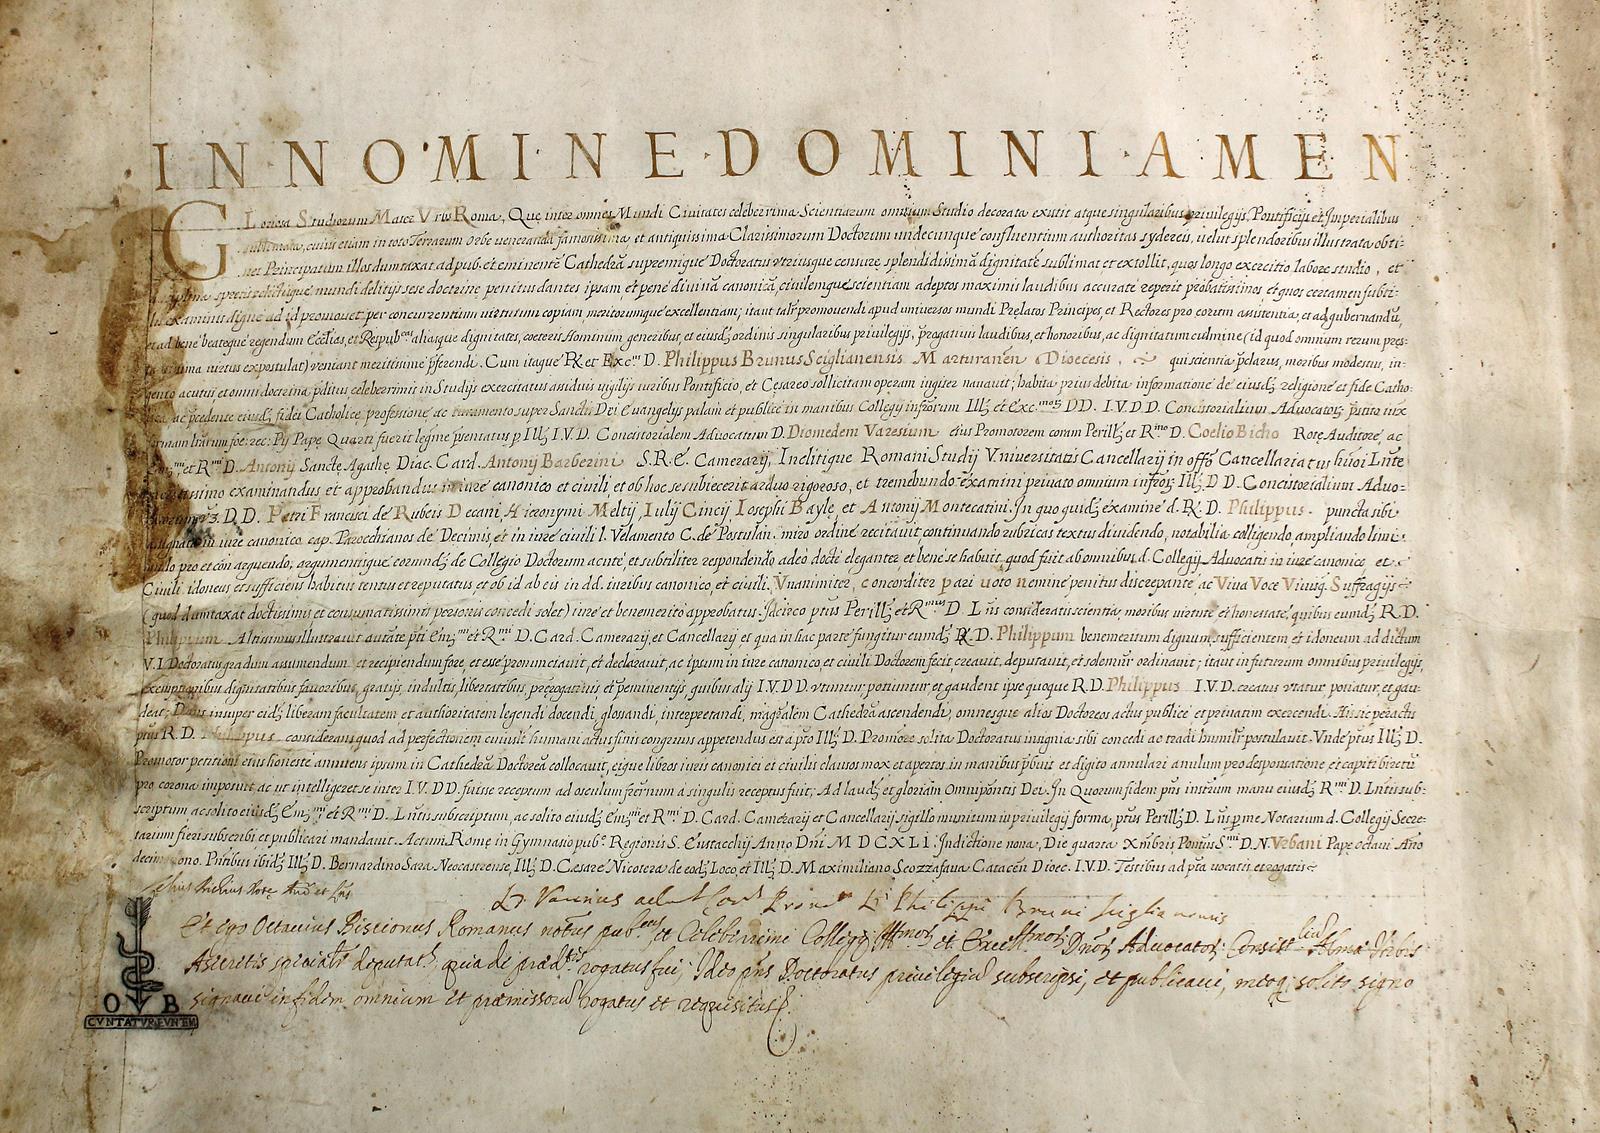 IN NOMINE DOMINI AMEN
Gloriosa Studiorum Mater Urbs Roma, Quę inter omnes Mundi Civitates celeberrima Scientiarum omnium Studio decorata existit atque singularibus privilegijs, Pontificijs et Imperialibus
sublimata, cuius etiam in toto Terrarum Orbe veneranda famosissima et antiquissima Clarissimorum Doctorum undecunque confluentium authoritas sydereis, velut splendoribus illustrata obti-
net Principatum illos dumtaxat ad pub. et eminentē Cathedrā supremique Doctoratus utriusque censurę splendidissimā dignitatē sublimat et extollit, quos longo exercitio labore studio, et
mundi delitijs sese doctrinę penitus dantes ipsam, et penè divinā canonicā, civilemque scientiam adeptos maximis laudibus accuratè reperit probatissimos et quos certamen subti-
examinis dignè ad id promovet per concurrentium virtutum copiam meritorumque excellentiam; itaut talr̄ promovendi apud universos mundi Pręlatos Principes, et Rectores pro eorum asistentia, et ad gubernandū,
et ad benè beateque regendum Ecclīas, et Respub.cas aliasque dignitates, coeteris Hominum generibus, et eiusdȝ ordinis singularibus privilegijs, p̄rogativis laudibus, et honoribus, ac dignitatum culmine (id quod omnium rerum pręs-
virtus expostulat) veniant meritissimè p̄ferendi. Cum itaque R. et Exc.mus D. Philippus Brunus Sciglianensis Marturanēn Dioecesis, qui scientia p̄clarus, moribus modestus, in-
genio acutus et omni doctrina p̄ditus celeberrimis in Studijs exercitatus assiduis vigilijs iuribus Pontificio, et Cesareo sollicitam operam iugiter navavit; habita prius debita informatione dè eiusdȝ religione et fide Catho-
lica, ac p̄cedente eiusdȝ fidei Catholicę professione ac iuramento super Sancta Dei Evangelys palàm et publicè in manibus Collegij infr̄orum Illȝ. et Exc.morȝ DD. I.V.D D. Concistorialium Advocatorȝ p̄stito iux
formam litr̄arum foe: rec: Pij Papę Quarti fuerit legitimè p̄sentatus p Illȝ I.V.D. Concistorialem Advocatum D. Diomedem Varesium eius Promotorem coram Perillȝ et R.mo D. Coelio Bicho Rotę Auditore, ac
Em.mi et R.mi D. Antonij Sanctę Agathę Diac. Card. Antonij Barberini S.R.E. Camerarij, Inclitique Romani Studij Universitatis Cancellarij in offō Cancellariatus hūoi Lnte
meritissimo examinandus et approbandus in iurè canonico et civili, et ob hoc se subiecerit arduo rigoroso, et tremebundo examini privato omnium infr̄orȝ Illȝ D D. Concistorialium Advo-
catorum D. D. Petri Francisci dè Rubeis Decani, Hieronymi Meltij, Iulij Cincij Iosephi Baylę, et Antonij Montecatini. In quo quidȝ examinè d. R. D. Philippus puncta sibi
assignata in iurè canonico cap. Parocchianos dè Decimis, et in iurè civili l. Velamento C. dè Postulan. miro ordinè recitavit continuando rubricas textus dividendo, notabilia colligendo, ampliando limi-
pro et còn arguendo, argumentisque eorumdȝ dè Collegio Doctorum acutè, et subtiliter respondendo adeò doctè eleganter, et benè se habuit, quod fuit ab omnibus d. Collegij Advocatis in iurè canonico, et
Civili idoneus et sufficiens habitus tentus et reputatus et ob id ab eis in dd. iuribus canonico, et civili. Unanimiter, concorditer pari voto neminè penitus discrepantè ac Viva Vocè Vivisq. Suffragijs
(quod dumtaxat doctissimis et consumatissimis personis concedi solet) iurè et benemeritò approbatus. Idcirco p̄tus Perillȝ et R.mus D. Lñs consideratis scientia, moribus virtutè et honestatè, quibus eumdȝ R.D.
Philippum Altissimus illustravit autātè p̄ti Em.mi et R.mi D. Card. Camerarij, et Cancellarij et qua in hac partè fungitur eumdȝ R. D. Philippum benemeritum dignum, sufficientem et idoneum ad dictum
V.I. Doctoratus gradum assumendum et recipiendum fore, et essè pronunciavit, et declaravit, ac ipsum in iurè canonico, et civili Doctorem fecit creavit, deputavit, et solemnr̄ ordinavit; itaut in futurum omnibus privilegijs,
exemptionibus dignitatibus favoribus, gratijs, indultis, libertatibus, pręrogativis et p̄eminentijs, quibus alij I.V.D D. utuntur, potiuntur, et gaudent ipsè quoque R.D. Philippus I.V.D. creatus utatur, potiatur, et gau-
deat; Dans insuper eidȝ liberam facultatem et authoritatem legendi docendi, glossandi, interpretandi, magr̄alem Cathedrā ascendendi, omnesque alios Doctoreos actus publicè et privatim exercendi. His sic peractis
ptus R.D. Philippus considerans quod ad perfectionem cuiuslȝ humani actus finis congruus appetendus est a p̄to Illȝ D. Promorè solita Doctoratus insignia sibi concedi ac tradi humilr̄ postulavit. Undè p̄tus Illȝ D.
Promotor petitioni eius honestè annuens ipsum in Cathedrā Doctoreā collocavit, eique libros iuris canonici et civilis clausos mox et apertos in manibus p̄buit et digito annulari anulum pro desponsationè et capiti biretū
pro corona imposuit ac ut intelligeret se inter I.V.D D. fuissè receptum ad osculum fr̄ernum à singulis receptus fuit; Ad laudȝ et gloriam Omnipōntis Dei. In Quorum fidem p̄ns instrūm manu eiusdȝ R.mi D. Lntis sub-
scriptum ac solito eiusdȝ Em.mi et R.mi D. Lntis subscriptum, ac solito eiusdȝ Em.mi et R.mi D. Card. Camerarij et Cancellarij sigillo munitum in privilegij forma, p̄tus Perillȝ D. Lñs p mè Notarum d. Collegij Secre-
tarium fieri subscribi et publicari mandavit. Actum Romę in Gymnasio pub.o Regionis S. Eustacchij Anno Dñi M D C X L I. Indictionè nona, Diè quarta Xmbris Pontūs S.mi D.N. Urbani Papę octavi Año
decimo nono. Pñtibus ibidȝ Illȝ D. Bernardino Sara Neocastrensè, Illȝ D. Cesarè Nicotera dè eodȝ Loco, et Illȝ D. Maximiliano Scozzafava Catacēn Dioec. I.V.D. Testibus ad p̄ta vocatis et rogatis
D. Varesius Philippi Bruni Siglianensis
Et ego Octavius Biscionus Romanus notūs pub.cus et Celeberrimi Collegij Illmorȝ et Excellmorȝ Dnorȝ Advocatorȝ Consist.lium Almę Urbis
A secretis deputatȝ, quia de prædtis rogatus fui, Ideo pñs Doctoratus privilegiū subscripsi, et publicavi, meoq; solito signo
signavi in fidem omnium et præmissorū rogatus et requisitus
O B
CVNTATVR EVNEM